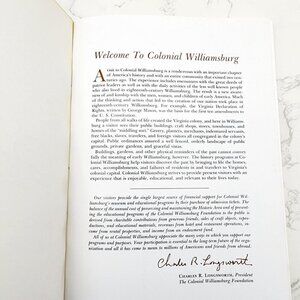 Welcome To Colonial Williamsburg
A visit to Colonial Williamsburg is a rendezvous with an important chapter
of America's history and with an entire community that existed two centuries ago. The experience includes encounters with the great deeds of
patriot leaders as well as with the daily activities of the less well known people
who also lived in eighteenth-century Williamsburg. The result is a new awareness of and kinship with the men, women, and children of early America. Much
of the thinking and action that led to the creation of our nation took place in
eighteenth-century Williamsburg. For example, the Virginia Declaration of
Rights, written by George Mason, was the basis for the first ten amendments to
the U. S. Constitution.
People from all walks of life created the Virginia colony, and here in Williamsburg a visitor sees their public buildings, craft shops, stores, townhouses, and
homes of the "middling sort." Greens, planters, merchants, indentured servants,
free blacks, slaves, travelers, and foreign visitors all congregated in the colony's
capital. Public ordinances assured a well fenced, orderly landscape of public
grounds, private gardens, and gracious vistas.
Buildings, gardens, and other physical reminders of the past cannot convey
fully the meaning of early Williamsburg, however. The history programs at Colonial Williamsburg help visitors discover the past by bringing to life the homes,
cares, accomplishments, and failures of residents and visitors in Virginia's
colonial capital. Colonial Williamsburg strives to provide present visitors with an
experience that is enjoyable, educational, and relevant to modern lives today.
Our visitors provide the single largest source of financial support for Colonial Williamsburg's museum and educational programs in the form of their admission tickets. The
balance of the annual cost of preserving and maintaining the Historic Area and of presenting the educational programs of the Colonial Williamsburg Foundation to the public is
derived from charitable contributions from generous friends, sales of craft objects, reproductions, and educational materials, revenues from hotel and restaurant operations, income from rental properties, and income from an endowment fund.
All of us at Colonial Williamsburg appreciate the many ways in which you support our
programs and purposes. Your participation is essential to the long-term future of the organization and all it has come to mean to Americans and friends from abroad.
Charles R. Longsworth
CHARLES R. LONGSWORTH, President
The Colonial Williamsburg Foundation